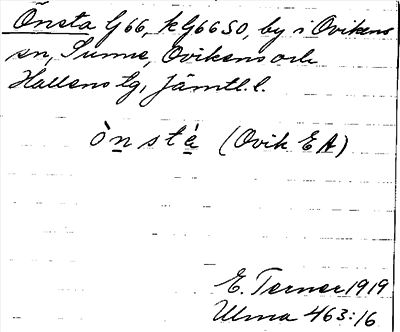 Önsta G66, kG66SO, by i Ovikens
sn, Sunne, Ovikens och
Hallens tg, Jämtl. l.
ò n s t á (Ovik EA)
E. Terner 1919
Ulma 463:16